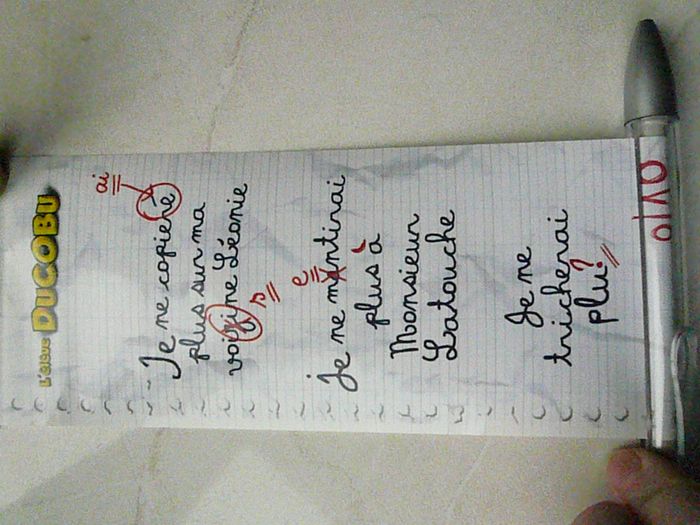 L'élève DUCOBU
ai
Je ne copieré
plus sur ma
voizine Léonie
s
e
Je ne mantirai
plus à
Monsieur
Latouche
Je ne
tricherai
plu?
0/10